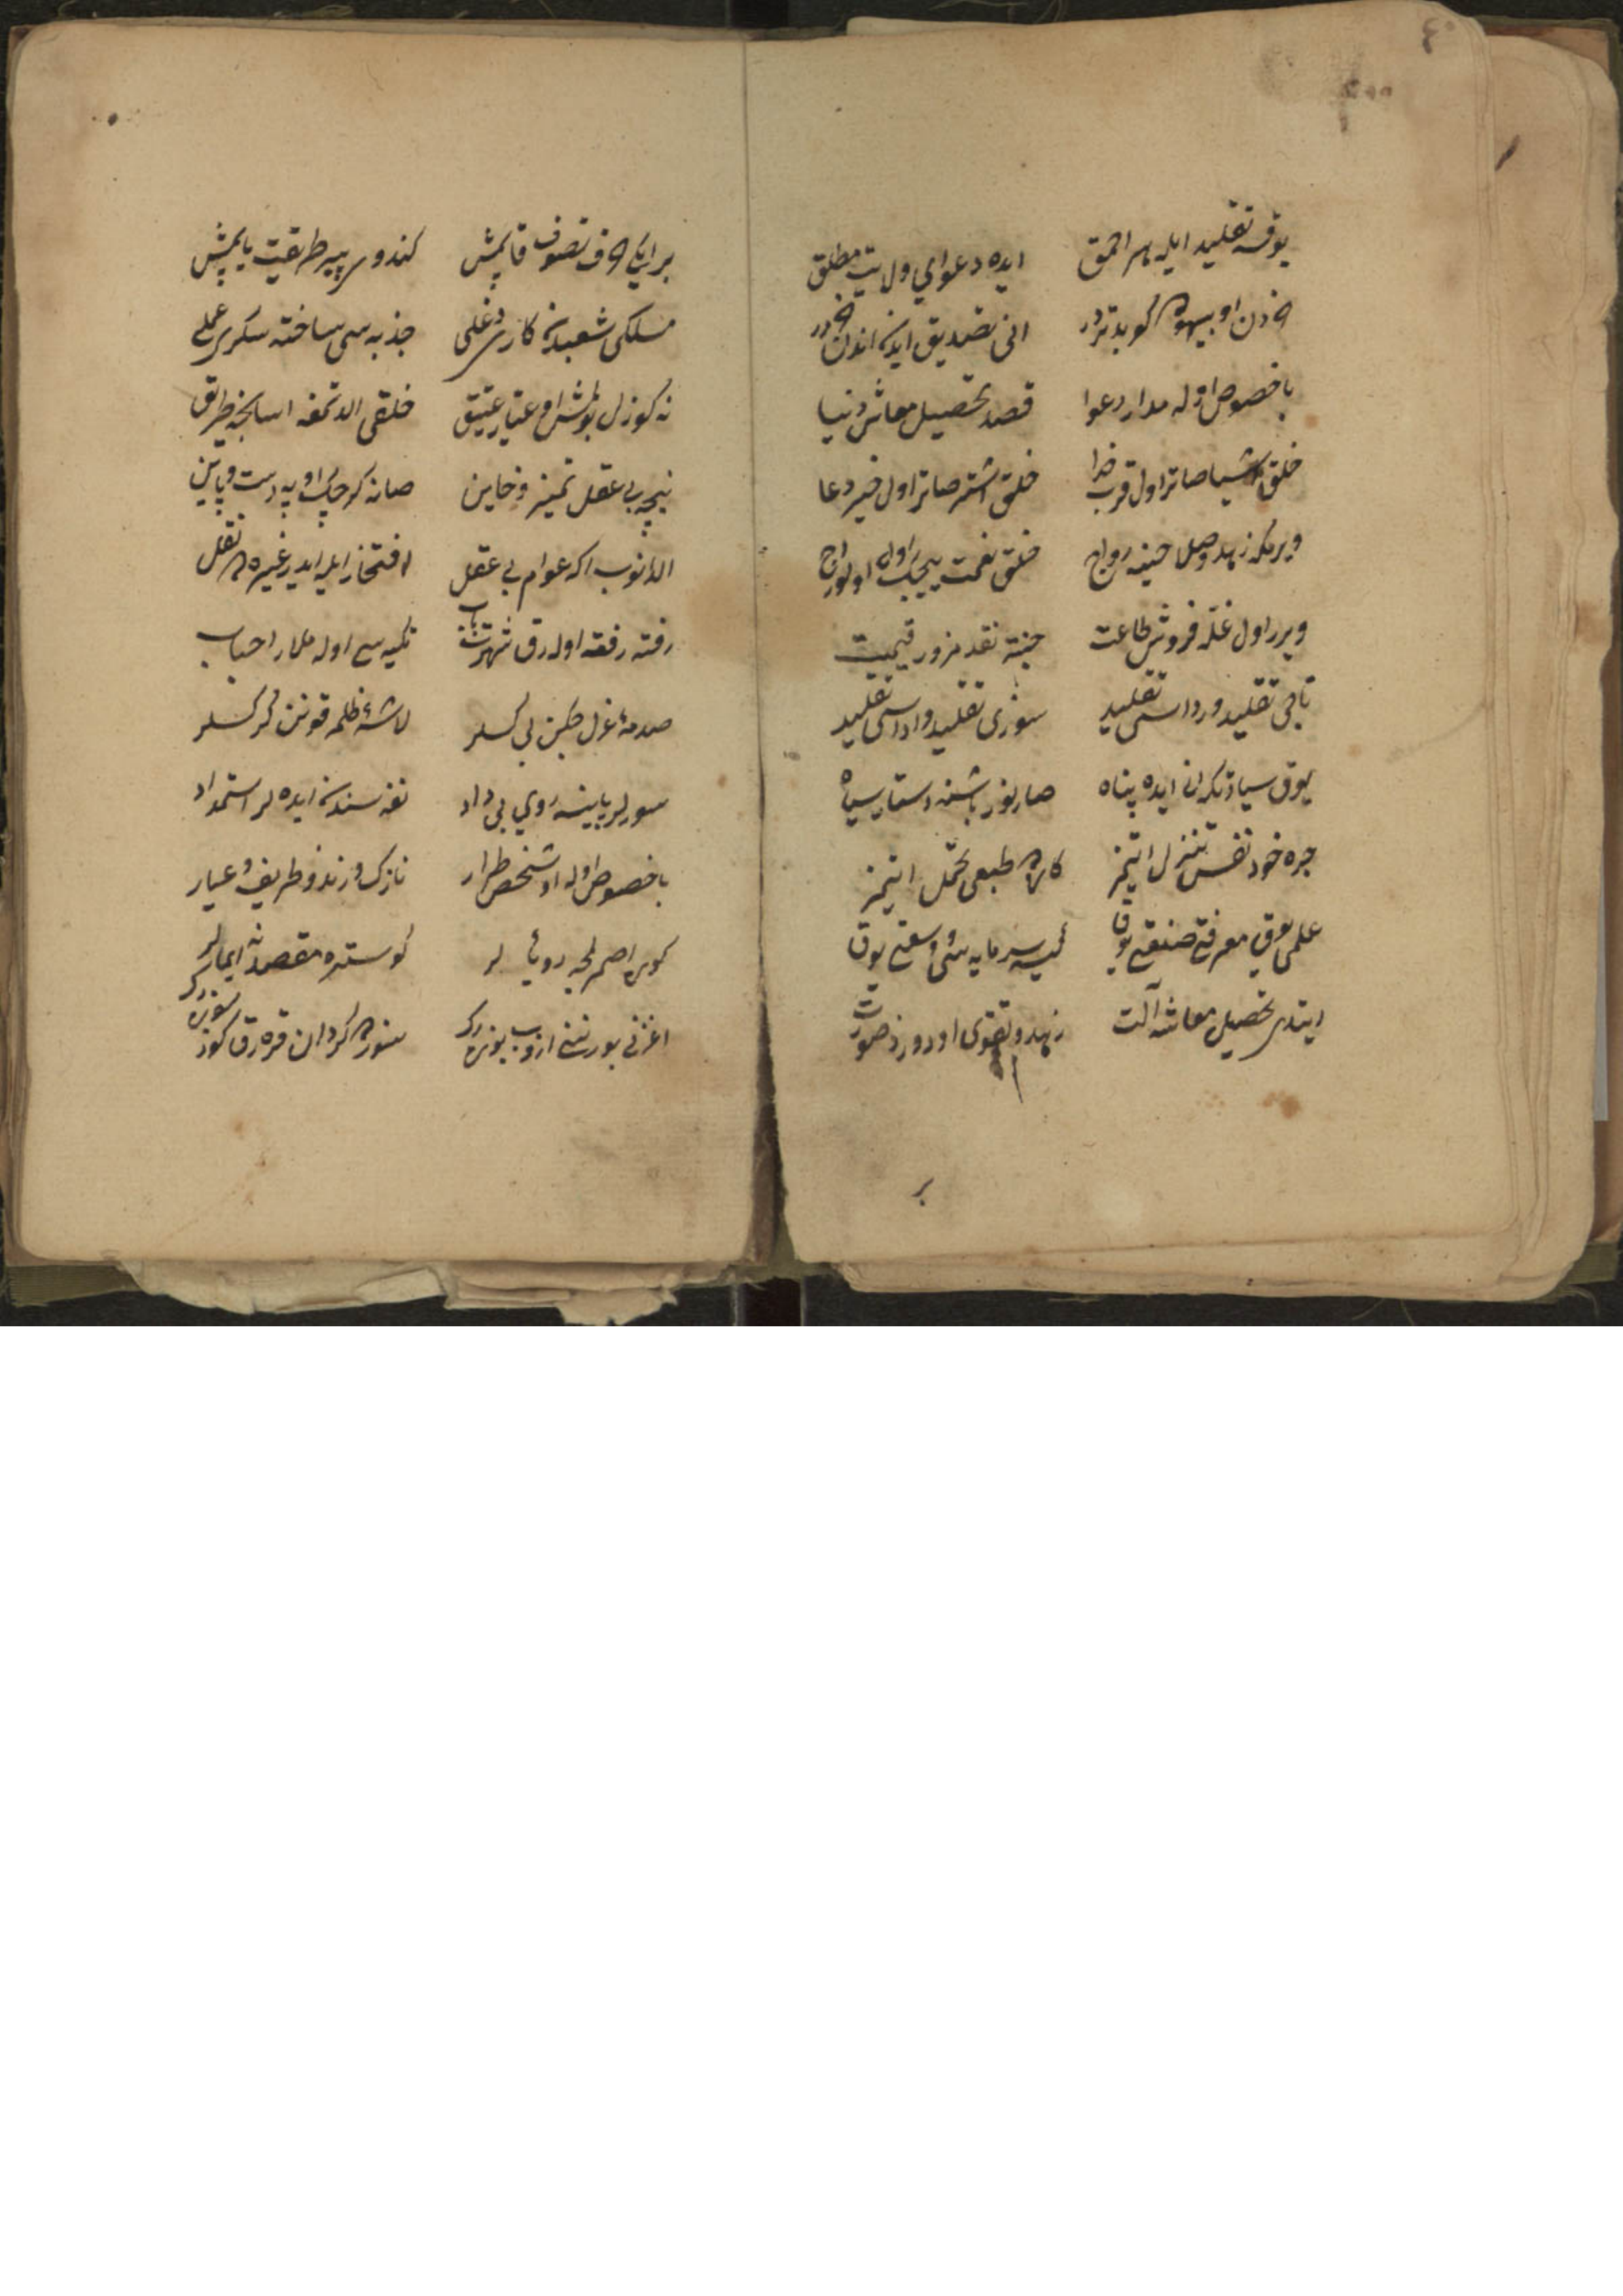 یوقسه تقلید ایله هر احمق
ایده دعوای ولایت مطلق
خردن او بیهوده کو بدتردر
انی تصدیق ایدن اندن خردر
باخصوص اوله مدار دعوا
قصد تحصیل معاش دنیا
خلق اشیا صاتر اول قرب خدا
خلق اشتر صاتر اول خیر دعا
ویرمکه زهد
رواج
خلق نعمت
ویرر اول غله فروش طاعت
جنته نقد مزور قیمت
تاجی تقلید و رداسی تقلید
سوزی تقلید و اداسی تقلید
یوق سیادتکه انی ایده پناه
صارینور باشنه دستار سیاه
جره خود نفسی تنزل ایتمز
کاره طبعی تحمل ایتمز
علمی یوق معرفتی صنعتی یوق
کیسه سرمایه سی وسعتی یوق
ایتدی تحصیل معاشه آلت
زهد و تقوی اودور ذ صورت
بر
بر ایکی حرف تصوف قاپمش
کندوسی پیر طریقت یاپمش
مسلکی شعبده کاری دغلی
جذبه سی ساخته سکری عملی
نه کوزل بولمش او عیار عتیق
خلقی الداتمغه اسانجه طریق
نیجه بی عقل تمیز و خاین
صانه کرچک اوپه دست و پاین
الدانوب اکه عوام بی عقل
افتخار ایله ایدر غیره نقل
رفته رفته اوله رق شهرتیاب
تکیه سی اوله مدار احباب
صدمهٔ غول
بی کسلر
لاشهٔ ظلمه قونن کرکسلر
سورلر پاینه روی بی داد
نفسندن ایده لر استمداد
باخصوص اوله او شخص طرار
نازک و رند و ظریف و عیار
کوره اصم
لر
کوستره مقصدنه ایمالر
اغزنی بورننی ازوب بوزه رک
سوزه کردان قره رق کوز سوزه رک